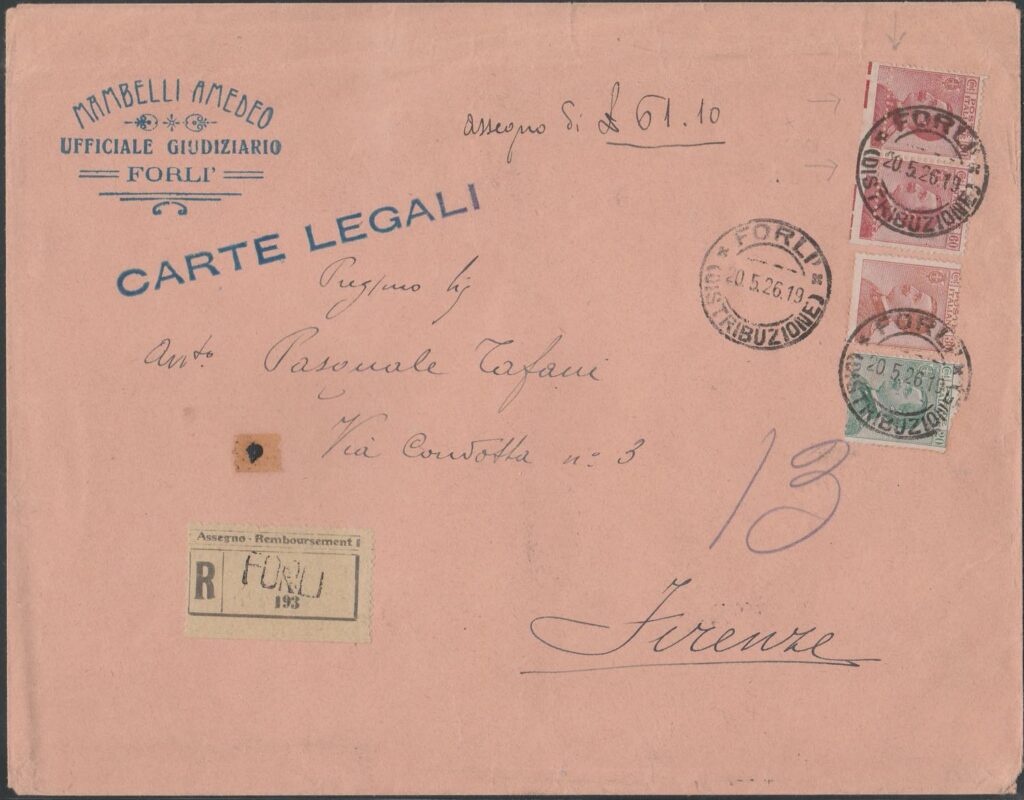 MAMBELLI AMEDEO
UFFICIALE GIUDIZIARIO
FORLI'
assegno di £ 61.10
CARTE LEGALI
FORLI'
20.5.26.19
(DISTRIBUZIONE)
FORLI'
20.5.26.19
(DISTRIBUZIONE)
FORLI'
20.5.26.19
(DISTRIBUZIONE)
60
Avv.to Pasquale Tafani
Via Condotta n.º 3
13
Assegno - Remboursement
R
FORLI
193
Firenze